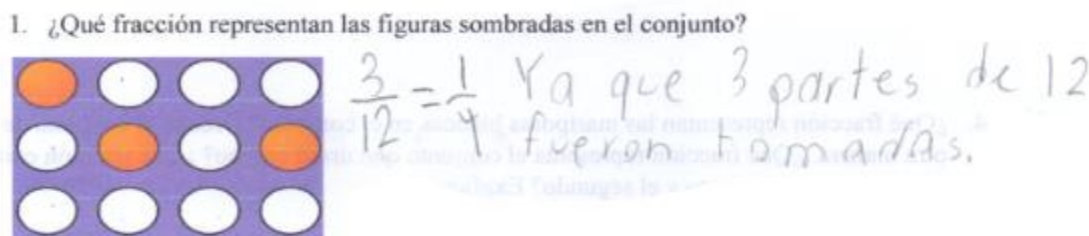 1. ¿Qué fracción representan las figuras sombradas en el conjunto?
3/12 = 1/4 Ya que 3 partes de 12
fueron tomadas.